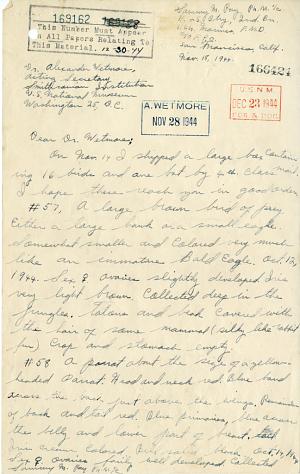 169162
This Number Must Appear
on All Papers Relating To
This Material. 12-30-44
Sammy M. Ray Ph.M. 1/c
H. & S. Co., 2nd Bn.
1st Marines F.M.F.
F.P.O.
San Francisco Calif.
Nov. 18, 1944.
166424
Dr. Alexander Wetmore,
Acting Secretary
Smithsonian Institution
U.S. National Museum
Washington 25, D.C.
A. WETMORE
NOV 28 1944
U S N M
DEC 23 1944
Dear Dr. Wetmore;
On Nov. 14 I shipped a large box contain
ing 16 birds and one bat by 4th class mail.
I hope these reach you in good order.
#57. A large brown bird of prey
Either a large hawk or a small eagle.
Somewhat smaller and Colored very much
like an immature Bald Eagle. Oct. 12,
1944. Sex ♀ ovaries slightly developed Iris
very light brown. Collected deep in the
jungles. Talons and beak Covered with
the hair of some mammal (silky like rabbit
fur) Crop and stomach empty.
#58 A parrot about the size of a yellow-
headed Parrot. Head and neck red. Blue band
across the back just above the wings. Remainder
of back and tail red. Blue primaries, blue across
the belly and lower part of
Iris cream colored, Oct. 14, 1944
Sex ♀ ovaries well developed Collected
Sammy M. Ray Ph.M. 1/c